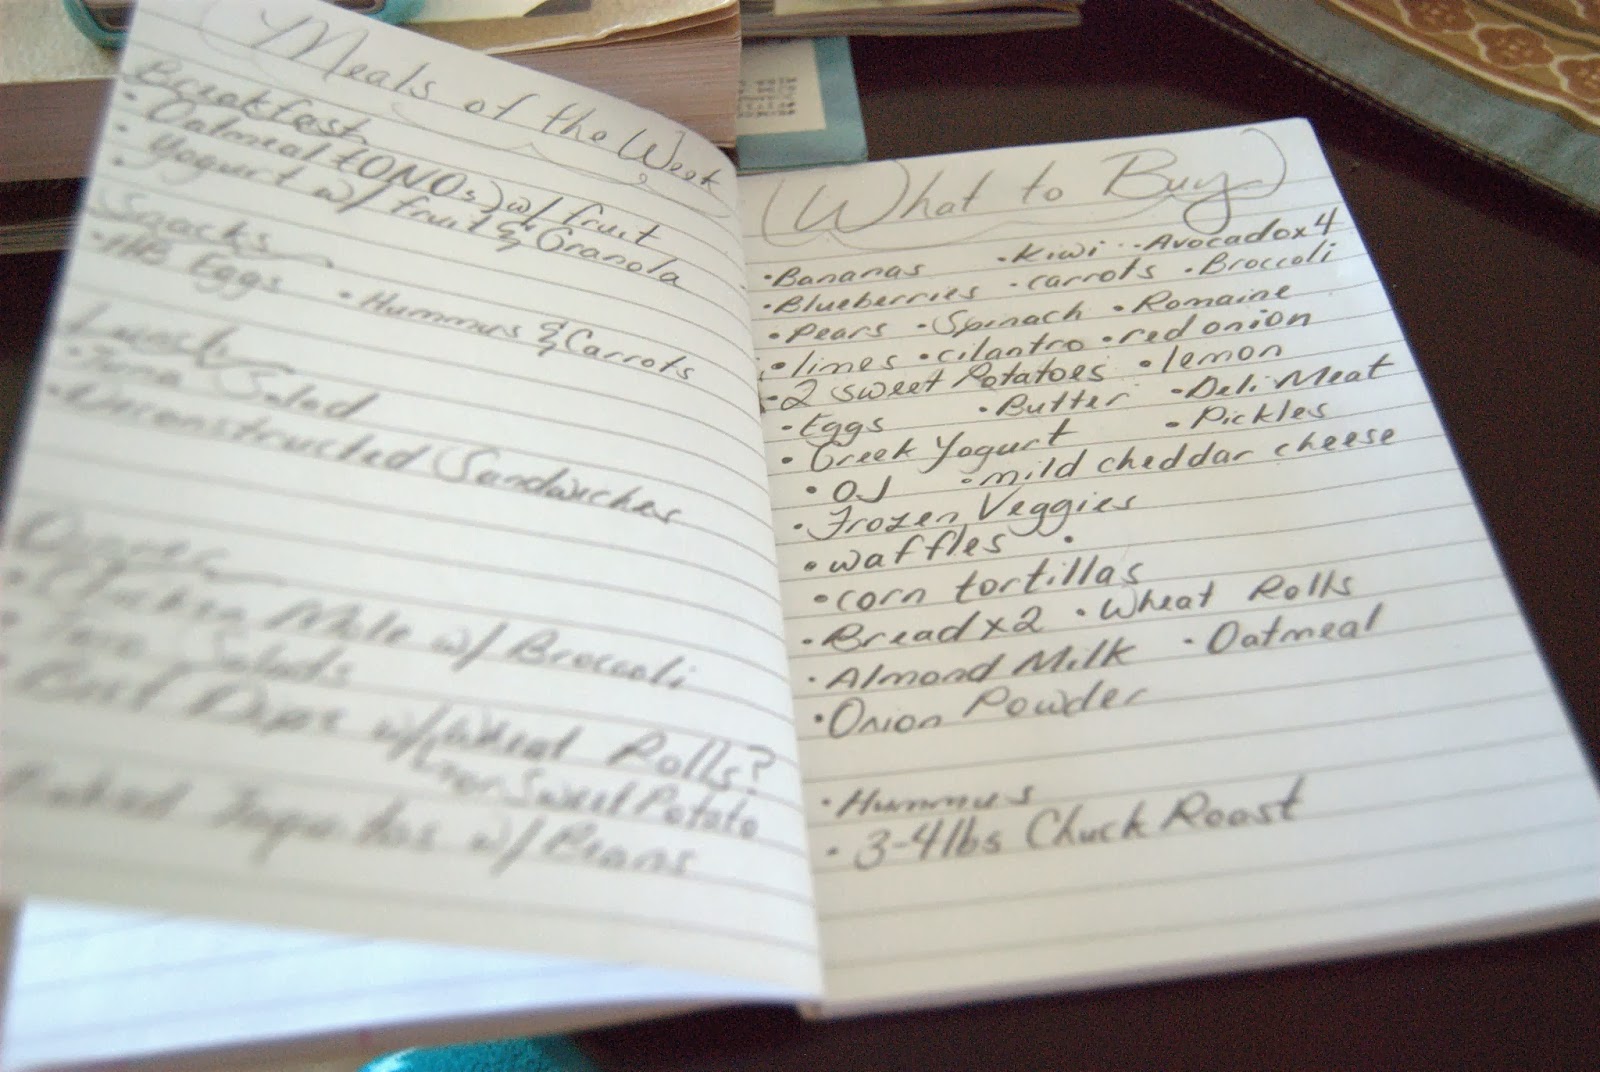 Meals of the Week
Breakfast
• Oatmeal (ONOs) w/ fruit
• Yogurt w/ fruit & Granola
Snacks
• HB Eggs • Hummus & Carrots
Lunch
• Tuna Salad
• Deconstructed Sandwiches
Dinner
• Chicken Mole w/ Broccoli
• Taco Salads
• Beef Dips w/ Wheat Rolls?
or Sweet Potato
Baked Taquitos w/ Beans
(What to Buy)
• Bananas • Kiwi • Avocado x 4
• Blueberries • carrots • Broccoli
• Pears • Spinach • Romaine
• limes • cilantro • red onion
• 2 sweet Potatoes • lemon
• Eggs • Butter • Deli Meat
• Greek Yogurt • Pickles
• OJ • mild cheddar cheese
• Frozen Veggies
• waffles •
• corn tortillas
• Bread x2 • Wheat Rolls
• Almond Milk • Oatmeal
• Onion Powder
• Hummus
• 3-4lbs Chuck Roast